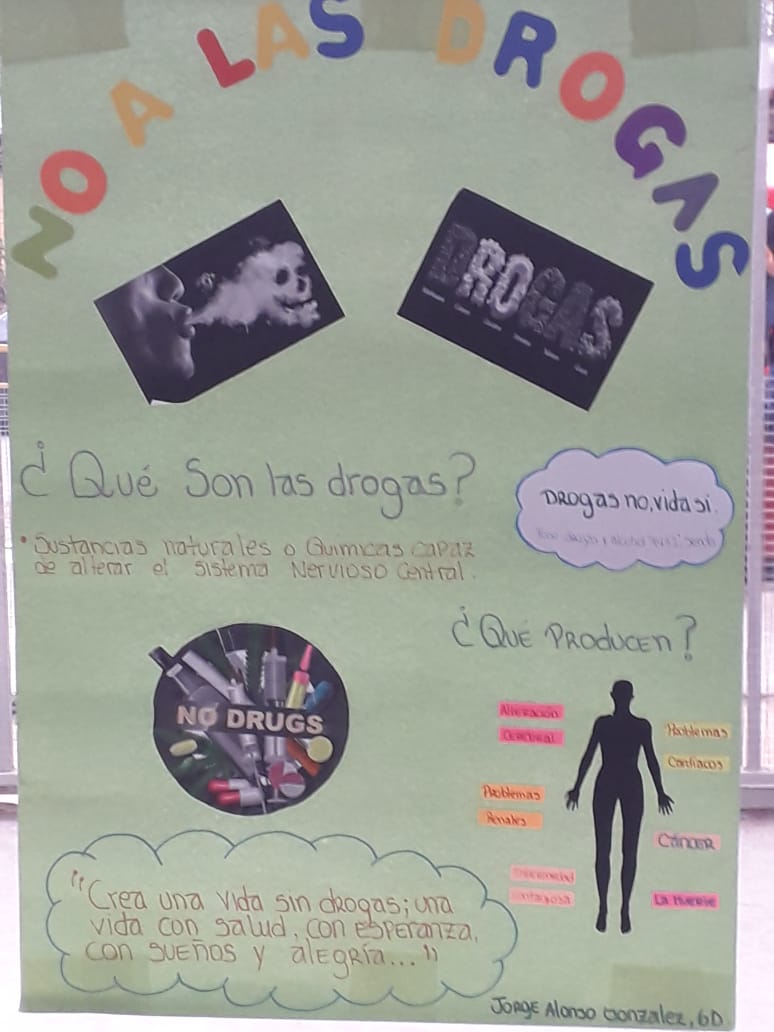 NO A LAS DROGAS
DROGAS
¿Qué Son las drogas?
• Sustancias naturales o Quimicas capaz
de alterar el sistema Nervioso Central.
DROGAS no, vida si.
¿QUÉ PRODUCEN?
NO DRUGS
Alteración
Cerebral
Problemas
Cardiacos
Problemas
Renales
CÁNCER
Enfermedad
Contagiosa
La Muerte
"Crea una vida sin drogas; una
vida con salud, con esperanza,
con sueños y alegría..."
Jorge Alonso Gonzalez, 6D.